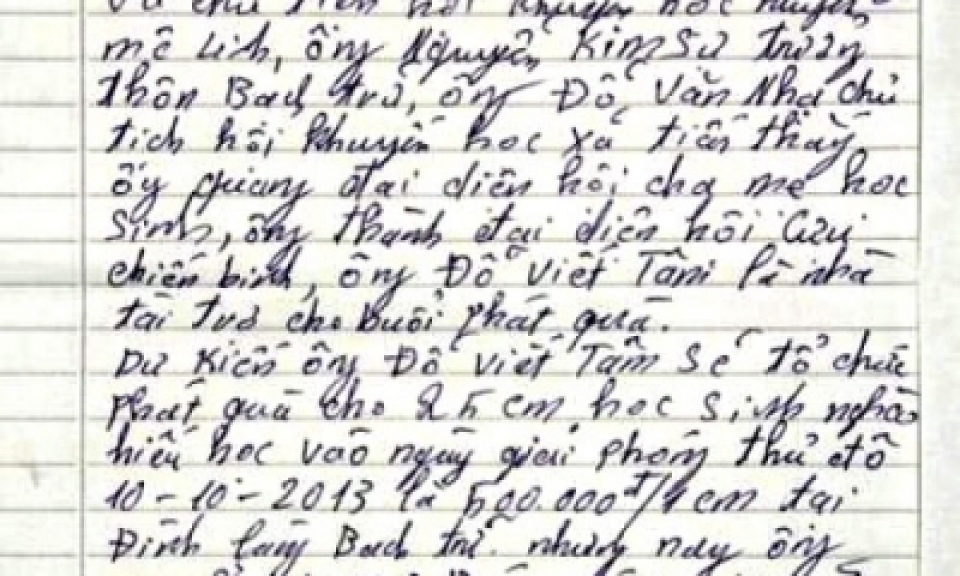 và chủ tịch hội khuyến học huyện
mê Linh, ông Nguyễn Kim Sử trưởng
thôn Bạch trữ, ông Đỗ Văn Nha chủ
tịch hội khuyến học xã tiến thắng
ông quang đại diện hội cha mẹ học
Sinh, ông thành đại diện hội Cựu
chiến binh, ông Đỗ Viết Tâm là nhà
tài trợ cho buổi phát quà.
Dự Kiến ông Đỗ Viết Tâm Sẽ tổ chức
phát quà cho 25 em học sinh nghèo
hiếu học vào ngày giải phóng thủ đô
10-10-2013 là 500.000đ/1em tại
Đình làng Bạch trữ. nhưng nay ông